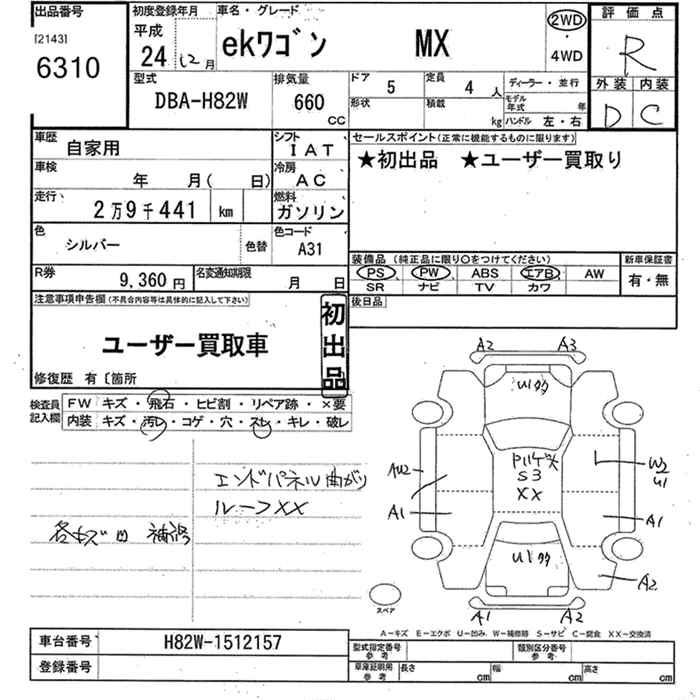 出品番号
[2143]
6310
初度登録年月
平成
24 12 月
車名・グレード
ekワゴン MX
2WD
・
4WD
評価点
R
外装 内装
D C
型式
DBA-H82W
排気量
660
CC
ドア 5
定員 4 人
ディーラー・並行
形状
積載 kg
モデル年式 年
ハンドル 左・右
車歴 自家用
シフト IAT
車検 年 月( 日)
冷房 AC
走行 2万9千441 km
燃料 ガソリン
色 シルバー
色替
色コード A31
R券 9,360円
名変通知期限 月 日
セールスポイント(正常に機能するものに限ります)
★初出品 ★ユーザー買取り
装備品(純正品に限り〇をつけてください)
PS PW ABS エアB AW
SR ナビ TV カワ
新車保証書
有・無
後日品
注意事項申告欄(不具合内容等は具体的に記入して下さい)
ユーザー買取車
初出品
修復歴 有〔箇所
検査員記入欄
FW キズ・飛石・ヒビ割・リペア跡・×要
内装 キズ・汚レ・コゲ・穴・スレ・キレ・破レ
エンドパネル曲がり
ルーフXX
各キズ凹 補修
A2 A3
U1多
AW2
A1
S3
XX
W2
U1
A1
U1多
A2
A1 A2
スペア
A−キズ E−エクボ U−凹み W−補修跡 S−サビ C−腐食 XX−交換済
車台番号 H82W-1512157
登録番号
型式指定番号 参考
類別区分番号 参考
車庫証明用 参考
長さ cm 幅 cm 高さ cm